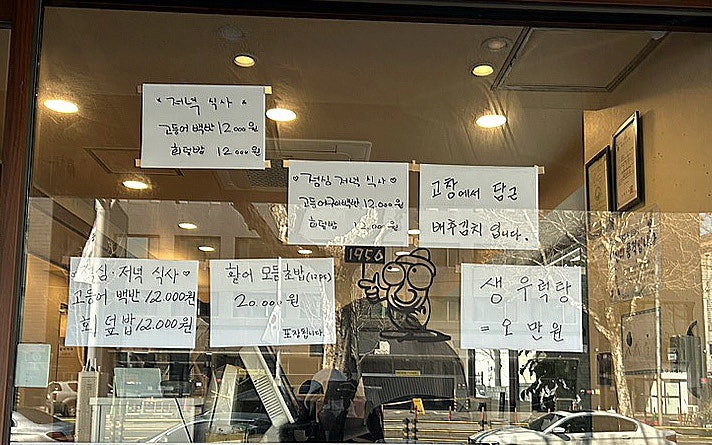 저녁 식사
고등어 백반 12,000원
회덮밥 12,000원
점심 저녁 식사
고등어구이백반 12,000원
회덮밥 12,000원
고창에서 담근
배추김치 입니다.
점심·저녁 식사
고등어 백반 12,000원
회 덮밥 12,000원
활어 모듬초밥(12PS)
20,000원
포장됩니다
1956
생 우럭탕
= 오 만원